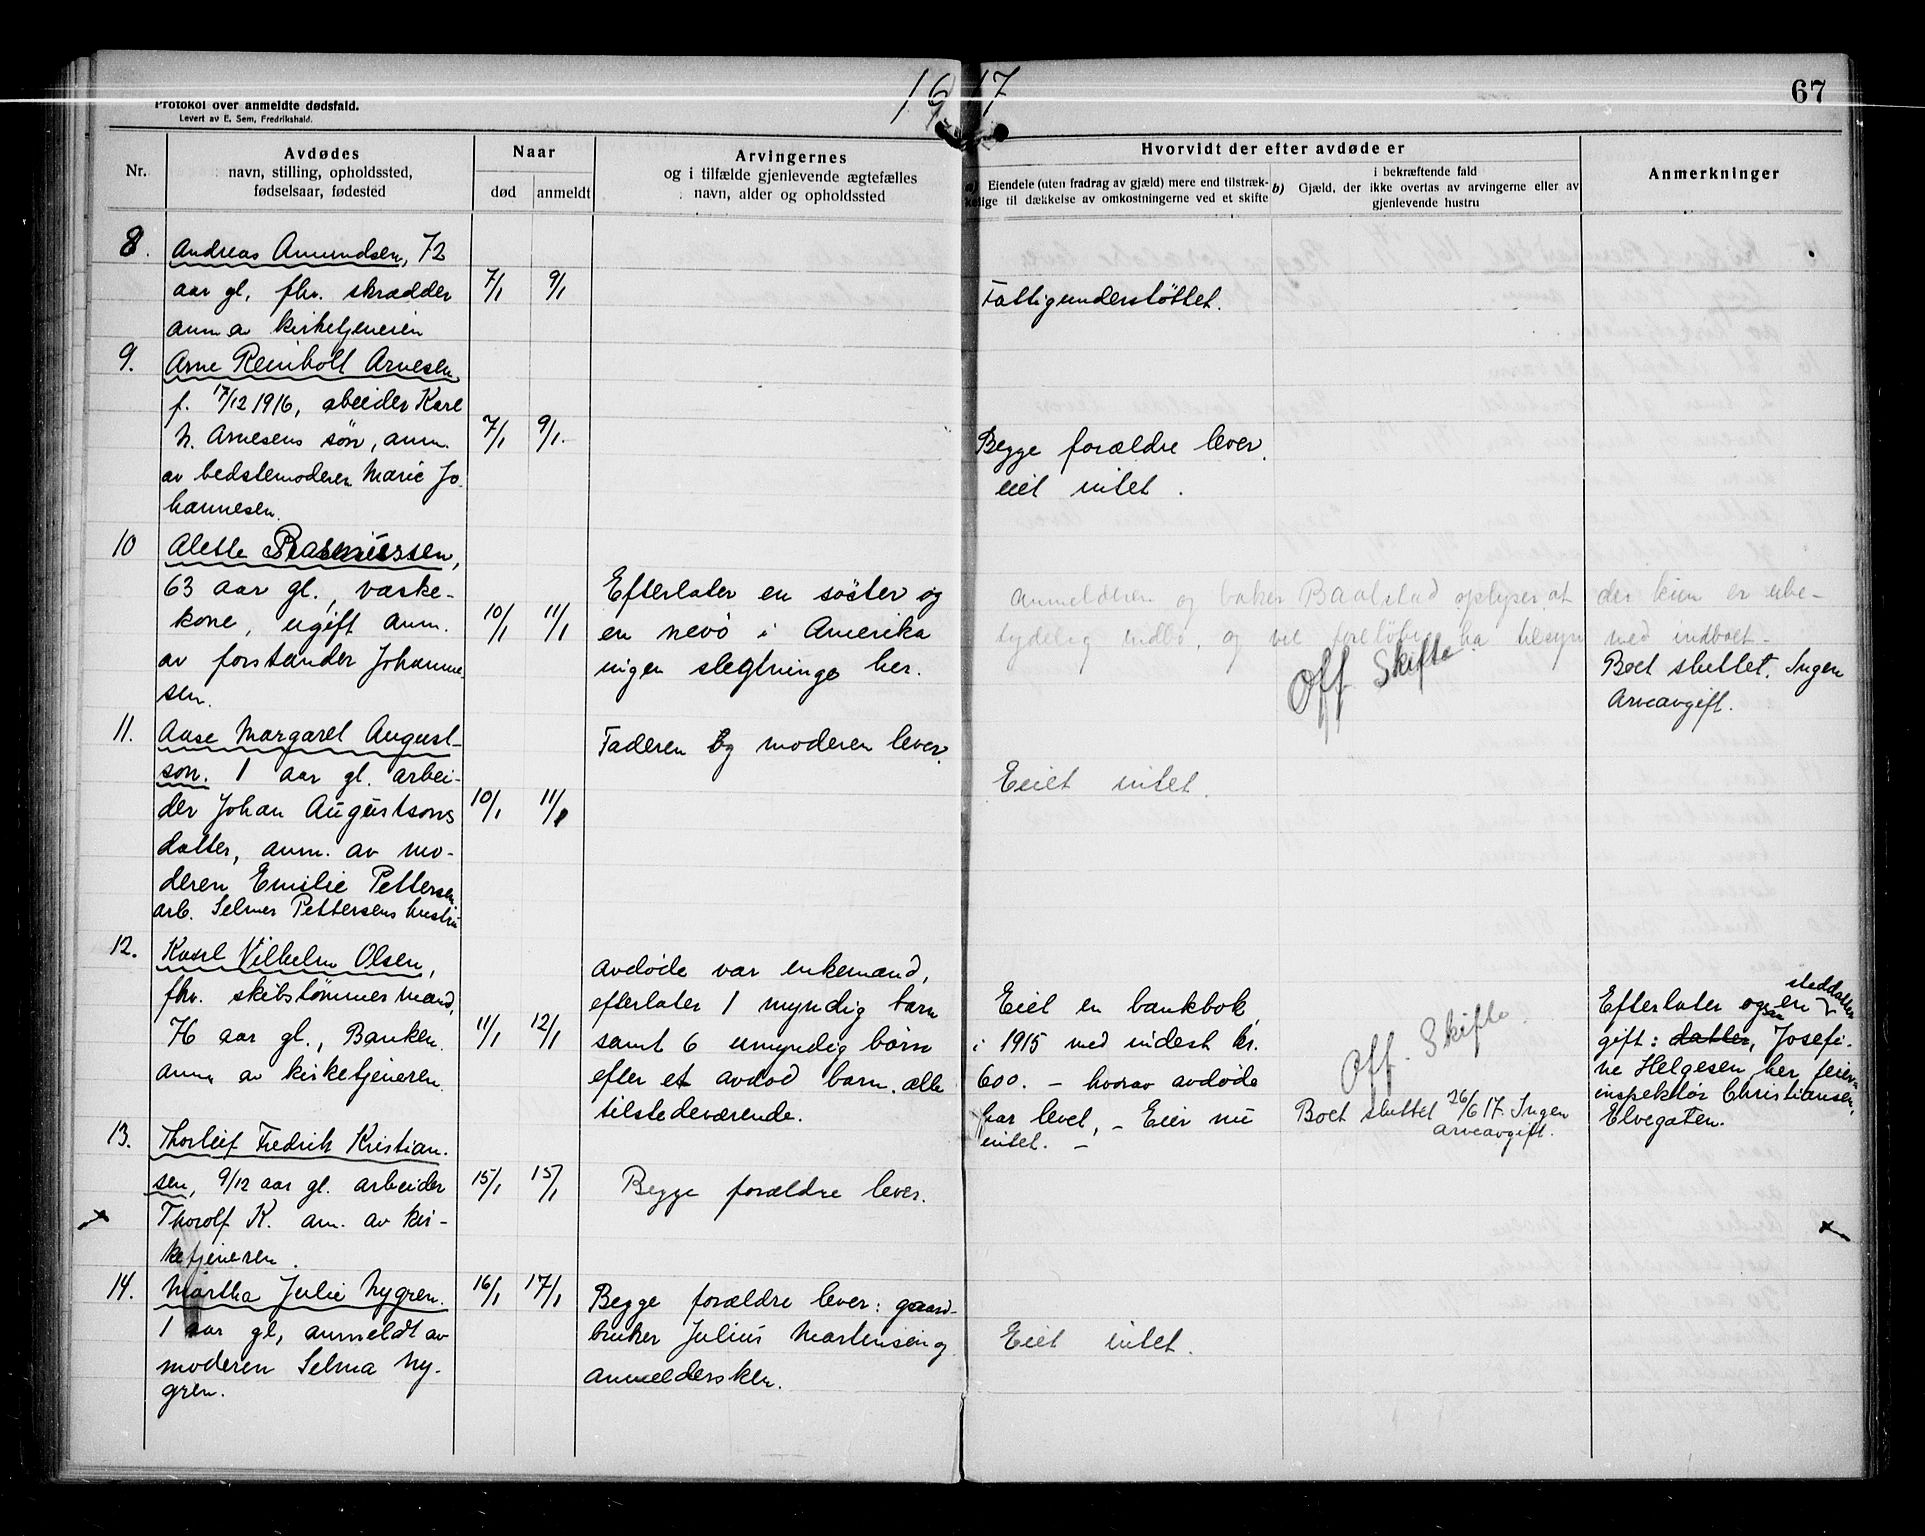 1917
67
Protokol over anmeldte dødsfald.
Levert av E. Sem, Fredrikshald.
Nr.
Avdødes
navn, stilling, opholdssted,
fødselsaar, fødested
Naar
død
anmeldt
Arvingernes
og i tilfælde gjenlevende ægtefælles
navn, alder og opholdssted
Hvorvidt der efter avdøde er
a) Eiendele (uten fradrag av gjæld) mere end tilstræk-
kelige til dækkelse av omkostningerne ved et skifte
i bekræftende fald
b) Gjæld, der ikke overtas av arvingerne eller av
gjenlevende hustru
Anmerkninger
8.
Andreas Amundsen, 72
aar gl. fhv. skrædder
anm av kirketjeneren
7/1
9/1
Fattigunderstøttet.
9.
Arne Reinholt Arnesen
f. 17/12 1916, abeider Karl
N. Arnesens søn, anm.
av bedstemoderen Marie Jo
hannesen.
7/1
9/1.
Begge forældre lever.
eiet intet.
10
Alette Rasmussen,
63 aar gl., vaske-
kone, ugift anm.
av forstander Johanne-
sen.
10/1
11/1
Efterlater en søster og
en nevø i Amerika
ingen slegtninge her.
Anmelderen og baker Baalstad oplyser at der kun er ube-
tydelig indbo, og vil foreløbig ha tilsyn med indboet-
Off. Skifte
Boet sluttet. Ingen
Arveavgift.
11.
Aase Margaret August-
son. 1 aar gl. arbei-
der Johan Augustsons
datter, anm. av mo-
deren Emilie Pettersen
arb. Selmer Pettersens hustru
10/1
11/1
Faderen og moderen lever.
Eiet intet.
12.
Karl Vilhelm Olsen,
fhv. skibstømmermand,
76 aar gl., Banken.
anm av kirketjeneren.
11/1
12/1
Avdøde var enkemand,
efterlater 1 myndig barn
samt 6 umyndig børn
efter et avdød barn. alle
tilstedeværende.
Eiet en bankbok,
i 1915 med indest kr.
600. - hvorav avdøde
har levet, - Eier nu
intet. -
Off. Skifte.
Boet sluttet 26/6 17. Ingen
arveavgift.
steddatter
Efterlater og en
gift: datter, Josefi-
ne Helgesen, her feier-
inspektør Christiansen,
Elvegaten.
13.
Thorleif Fredrik Kristian-
sen, 9/12 aar gl. arbeider
Thorolf K. am. av kir-
ketjeneren.
15/1
15/1
Begge forældre lever.
14.
Martha Julie Nygren.
1 aar gl, anmeldt av
moderen Selma Ny-
gren.
16/1
17/1
Begge forældre lever: gaard-
bruker Julius Martinsen og
anmeldersken.
Eiet intet.